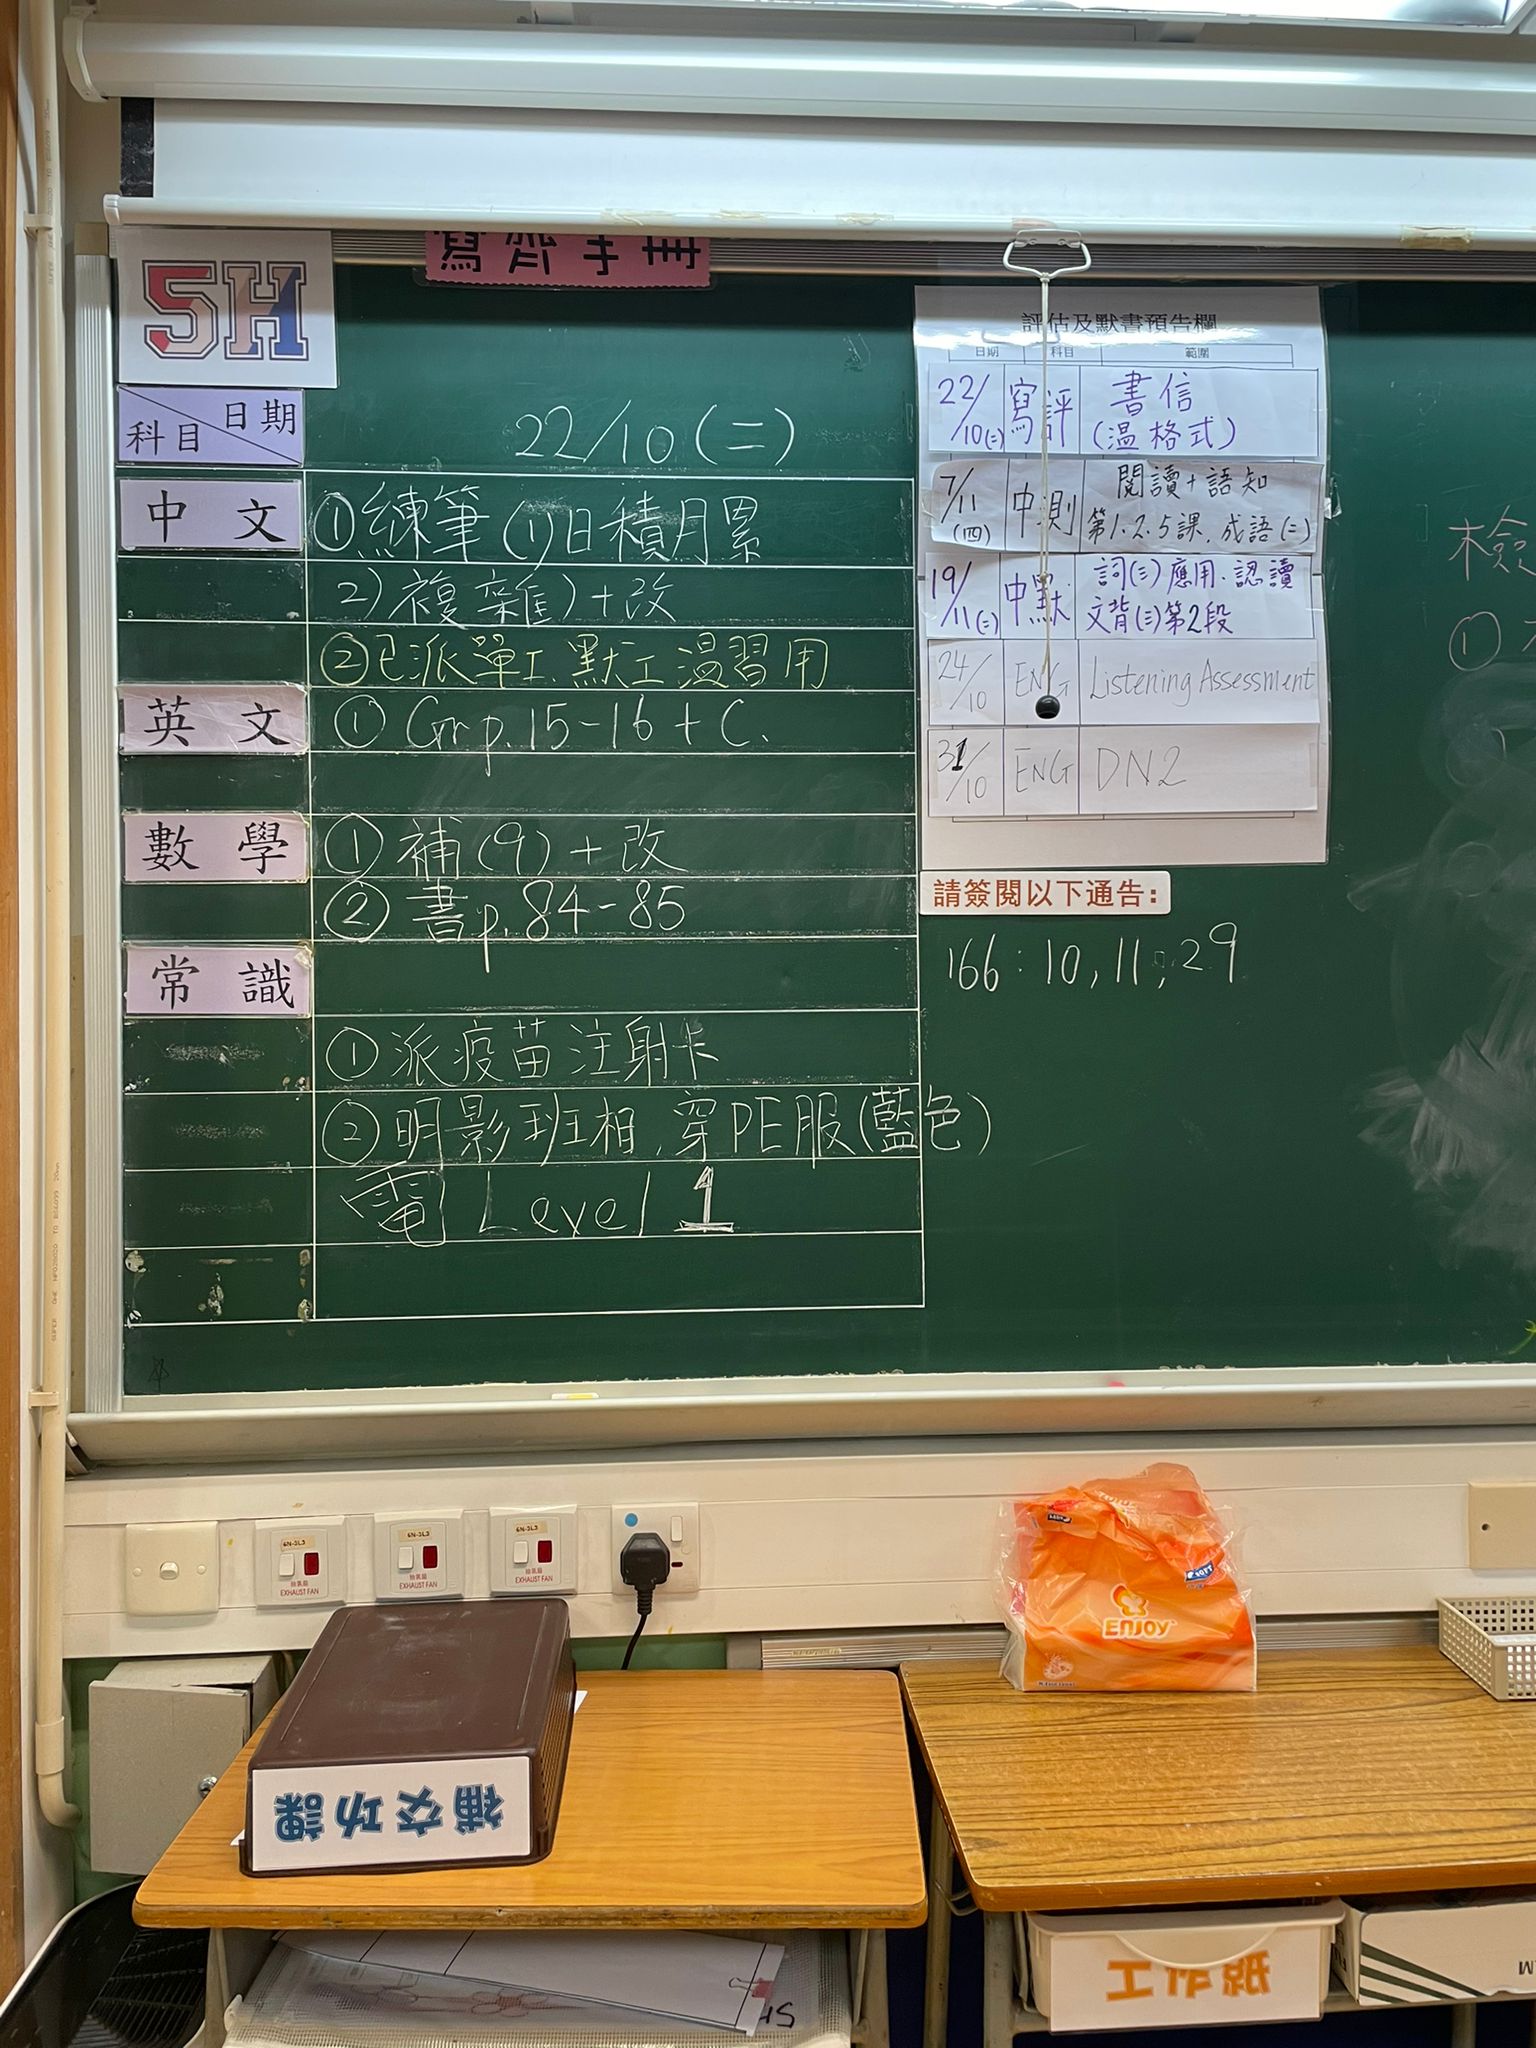 寫齊手冊
5H
日期
科目
22/10(二)
中文
①練筆(1)日積月累
2)複雜)+改
②已派單工.默工溫習用
英文
① Gr p.15-16 + C.
數學
① 補(9)+改
② 書p.84-85
常識
①派疫苗注射卡
②明影班相,穿PE服(藍色)
電 Level 1
評估及默書預告欄
日期 科目 範圍
22/10(二) 寫評 書信
(溫格式)
7/11(四) 中測 閱讀+語知
第1.2.5課.成語(二)
19/11(二) 中默 詞(三)應用.認讀
文背(三)第2段
24/10 ENG Listening Assessment
31/10 ENG DN2
請簽閱以下通告:
166: 10, 11, 29
檢
①
6N-3L3
抽氣扇
EXHAUST FAN
6N-3L3
抽氣扇
EXHAUST FAN
6N-3L3
抽氣扇
EXHAUST FAN
SOFT
Enjoy
補交功課
工作紙
5H